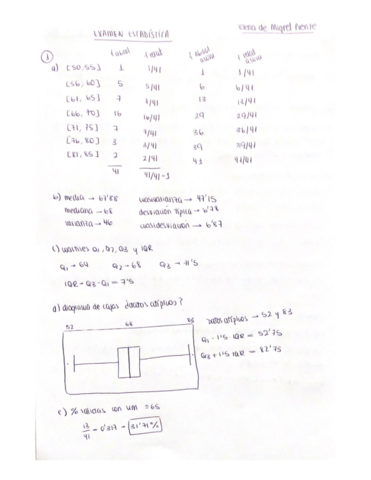 EXAMEN ESTADÍSTICA
de Miguel
①
a) [50, 55] 1 1/41 1 1/41
[56, 60] 5 5/41 6 6/41
[61, 65] 7 7/41 13 13/41
[66, 70] 16 16/41 29 29/41
[71, 75] 7 7/41 36 36/41
[76, 80] 3 3/41 39 39/41
[81, 85] 2 2/41 41/41
41 41/41 = 1
b) media → 67'88 cuasivarianza → 47'15
mediana → 68 desviación típica → 6'78
varianza → 46 cuasidesviación → 6'87
c) cuartiles Q₁, Q₂, Q₃ y IQR
Q₁ → 64 Q₂ → 68 Q₃ → 71'5
IQR = Q₃ - Q₁ = 7'5
d) diagrama de cajas ¿datos atípicos?
52 68 datos atípicos → 52 y 83
Q₁ - 1'5 IQR = 52'75
Q₃ + 1'5 IQR = 82'75
e) % con un =65
13/41 = 0'317 = 31'71%